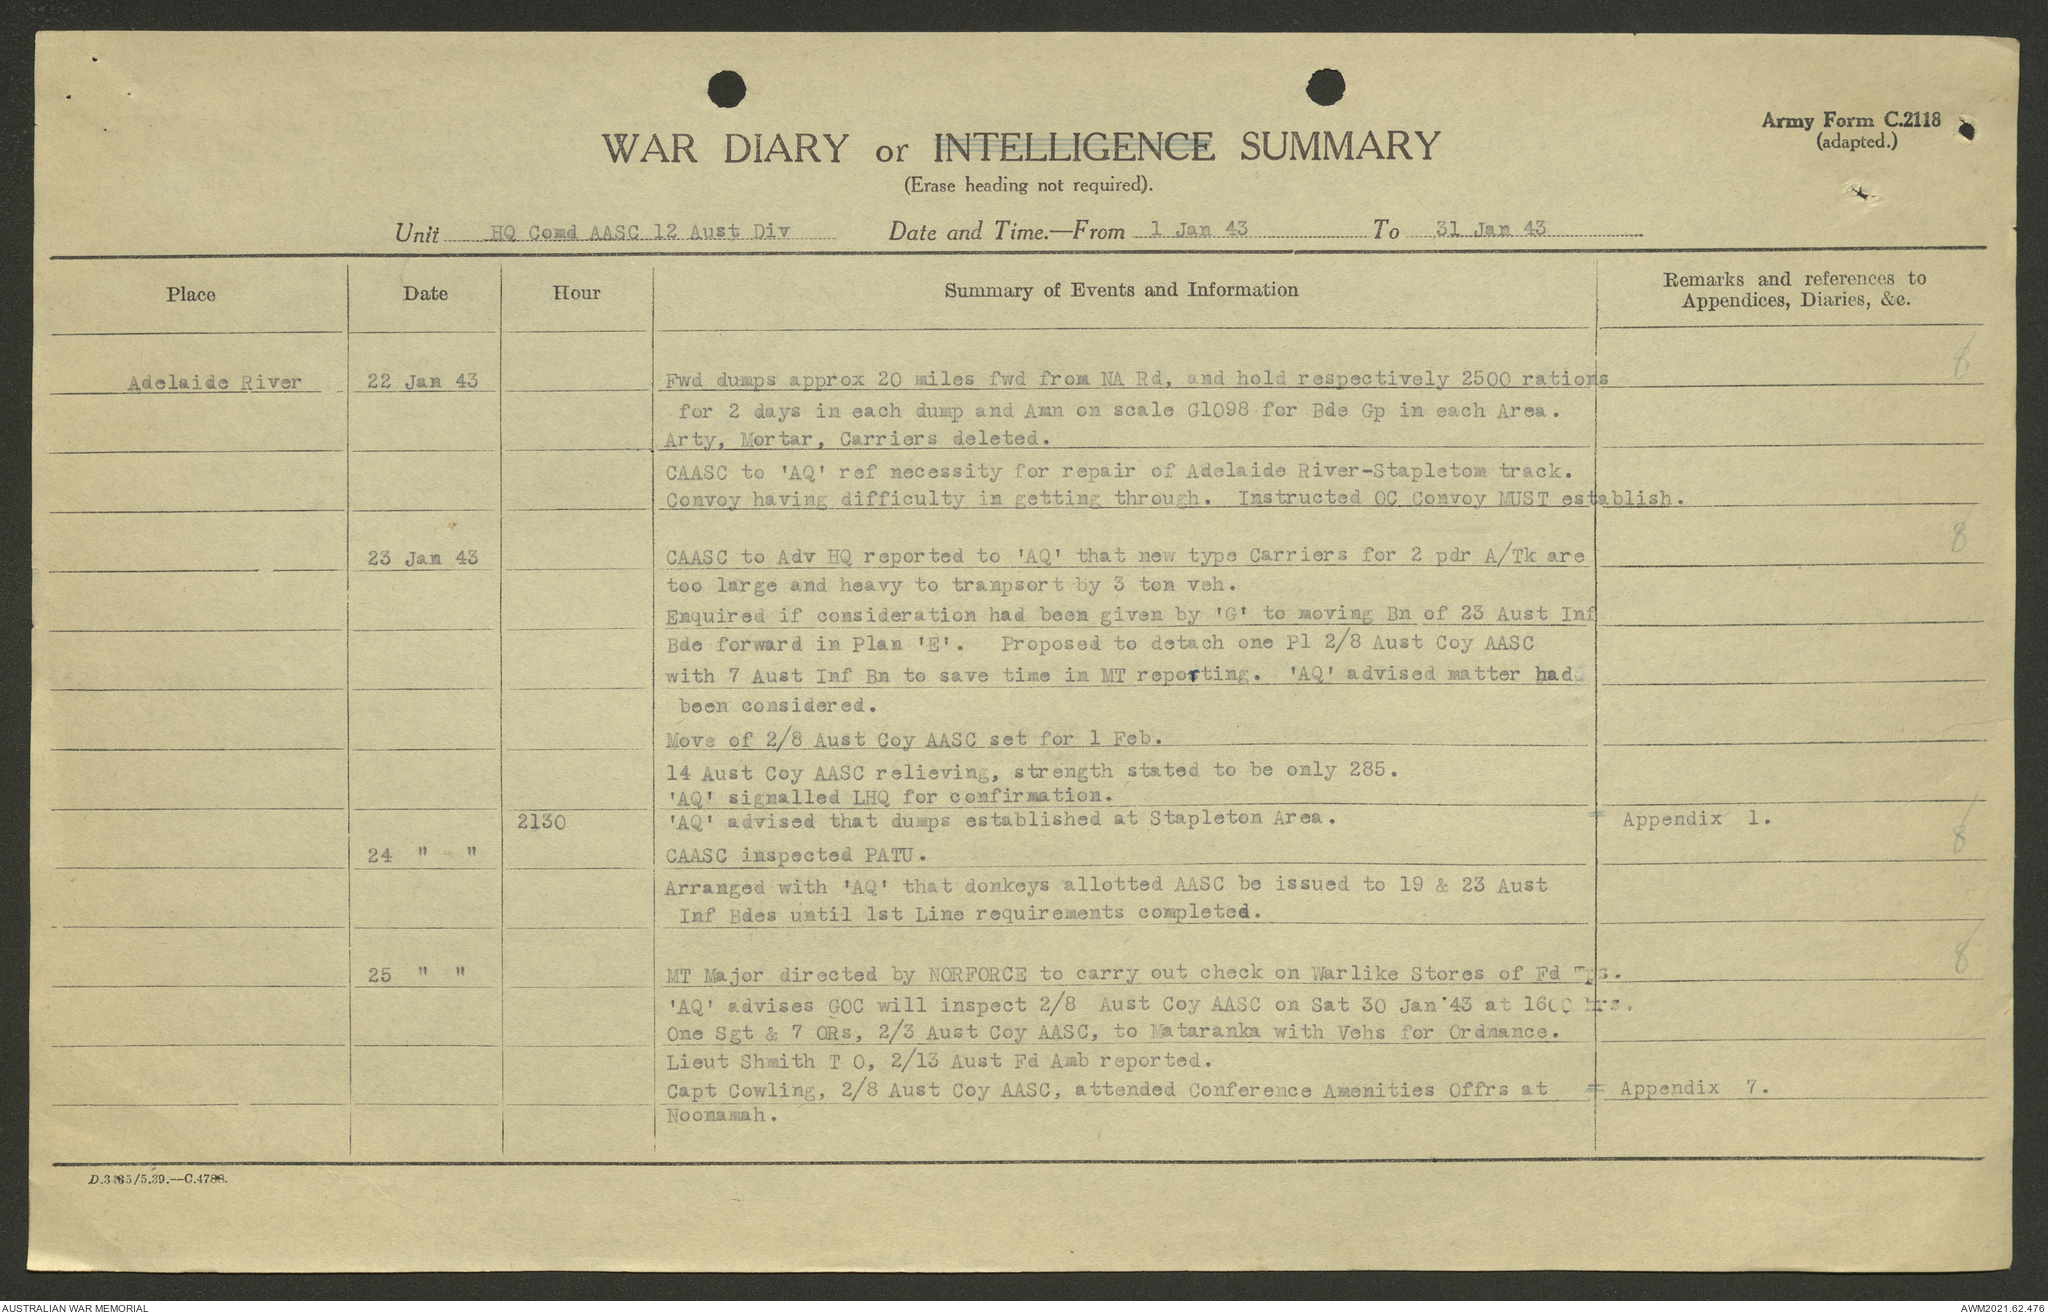 Army Form C.2118
(adapted.)
WAR DIARY or INTELLIGENCE SUMMARY
(Erase heading not required).
Unit HQ Comd AASC 12 Aust Div Date and Time.—From 1 Jan 43 To 31 Jan 43
Place Date Hour Summary of Events and Information Remarks and references to Appendices, Diaries, &c.
8
Adelaide River 22 Jan 43 Fwd dumps approx 20 miles fwd from NA Rd, and hold respectively 2500 rations
for 2 days in each dump and Amn on scale G1098 for Bde Gp in each Area.
Arty, Mortar, Carriers deleted.
CAASC to 'AQ' ref necessity for repair of Adelaide River-Stapletom track.
Convoy having difficulty in getting through. Instructed OC Convoy MUST establish.
8
23 Jan 43 CAASC to Adv HQ reported to 'AQ' that new type Carriers for 2 pdr A/Tk are
too large and heavy to tranpsort by 3 ton veh.
Enquired if consideration had been given by 'G' to moving Bn of 23 Aust Inf
Bde forward in Plan 'E'. Proposed to detach one Pl 2/8 Aust Coy AASC
with 7 Aust Inf Bn to save time in MT reporting. 'AQ' advised matter had
been considered.
Move of 2/8 Aust Coy AASC set for 1 Feb.
14 Aust Coy AASC relieving, strength stated to be only 285.
'AQ' signalled LHQ for confirmation.
2130 'AQ' advised that dumps established at Stapleton Area. = Appendix 1.
8
24 " " CAASC inspected PATU.
Arranged with 'AQ' that donkeys allotted AASC be issued to 19 & 23 Aust
Inf Bdes until 1st Line requirements completed.
8
25 " " MT Major directed by NORFORCE to carry out check on Warlike Stores of Fd Tps.
'AQ' advises GOC will inspect 2/8 Aust Coy AASC on Sat 30 Jan '43 at 1600 hrs.
One Sgt & 7 ORs, 2/3 Aust Coy AASC, to Mataranka with Vehs for Ordnance.
Lieut Shmith T O, 2/13 Aust Fd Amb reported.
Capt Cowling, 2/8 Aust Coy AASC, attended Conference Amenities Offrs at = Appendix 7.
Noonamah.
AUSTRALIAN WAR MEMORIAL
AWM2021.62.476